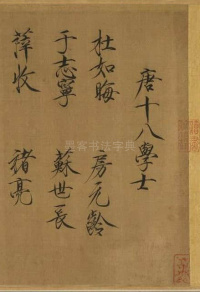 唐十八學士
杜如晦 房元齡
于志寧 蘇世長
薛收 褚亮